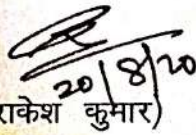 20/8/20
राकेश कुमार)